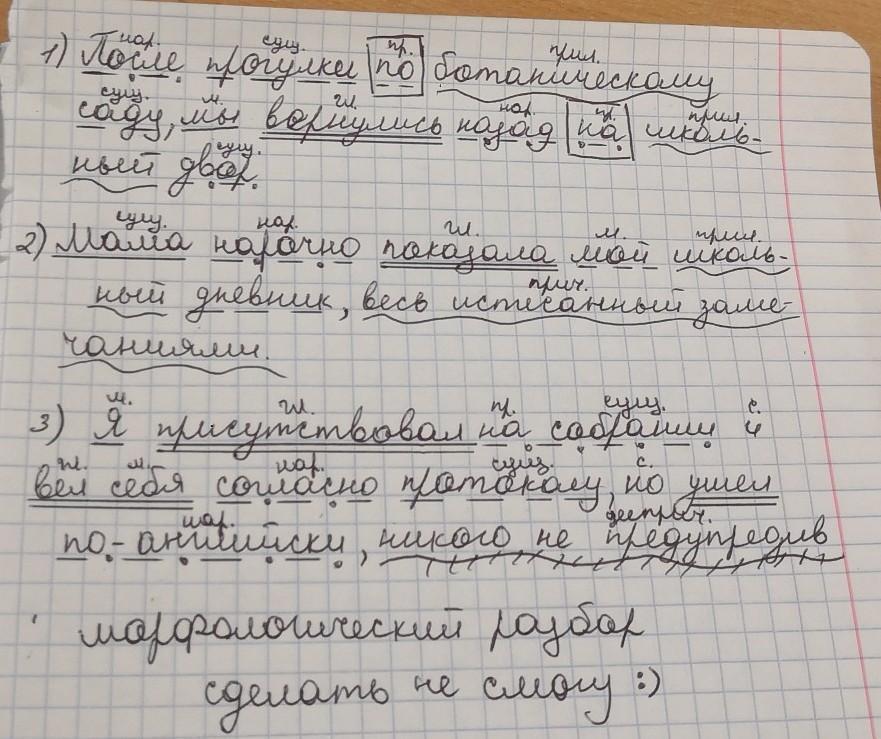 нар. сущ. пр. прил.
1) После прогулки по ботаническому
сущ. м. гл. нар. пр. прил.
саду, мы вернулись назад на школь-
сущ.
ный двор.
сущ. нар. гл. м. прил.
2) Мама нарочно показала мой школь-
прич.
ный дневник, весь исписанный заме-
чаниями.
м. гл. пр. сущ. с.
3) Я присутствовал на собрании и
гл. м. нар. сущ. с.
вел себя согласно протоколу, но ушел
нар. дееприч.
по-английски, никого не предупредив
морфологический разбор
сделать не смогу :)